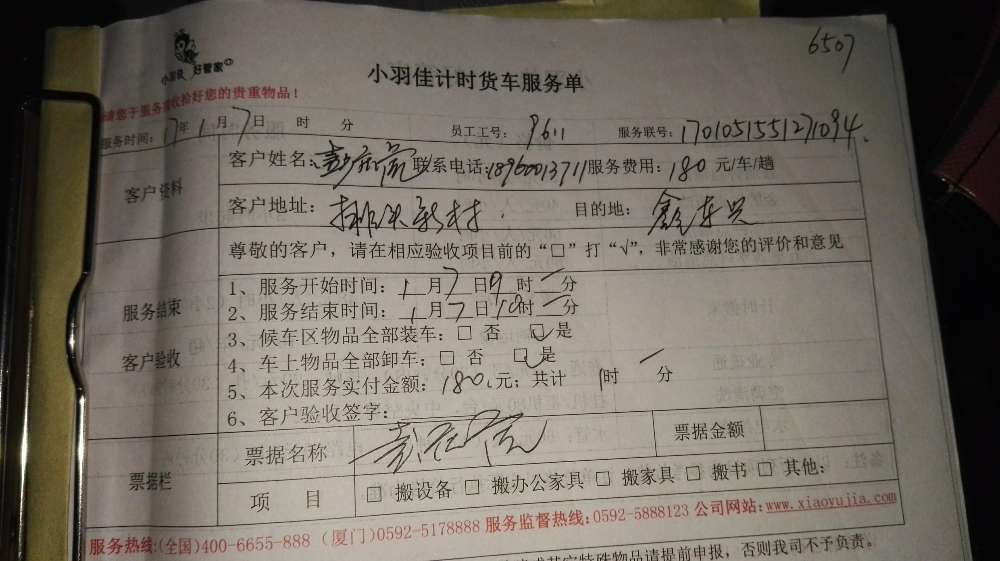 6507
小羽佳 好管家
小羽佳计时货车服务单
请您于服务前收拾好您的贵重物品！
服务时间：17年1月7日 时 分 员工工号：9611 服务联号：1701051551271094
客户资料
客户姓名： 联系电话：18960013711 服务费用：180 元/车/趟
客户地址： 新村 目的地：鑫东兴
尊敬的客户，请在相应验收项目前的“□”打“√”，非常感谢您的评价和意见
服务结束
客户验收
1、服务开始时间：1月7日9时 分
2、服务结束时间：1月7日10时 分
3、候车区物品全部装车：□ 否 □ 是
4、车上物品全部卸车：□ 否 □ 是
5、本次服务实付金额：180元；共计 1时 分
6、客户验收签字：
票据栏
票据名称 票据金额
项 目 □ 搬设备 □ 搬办公家具 □ 搬家具 □ 搬书 □ 其他：
服务热线：(全国)400-6655-888 (厦门)0592-5178888 服务监督热线：0592-5888123 公司网站：www.xiaoyujia.com
特殊物品请提前申报，否则我司不予负责。